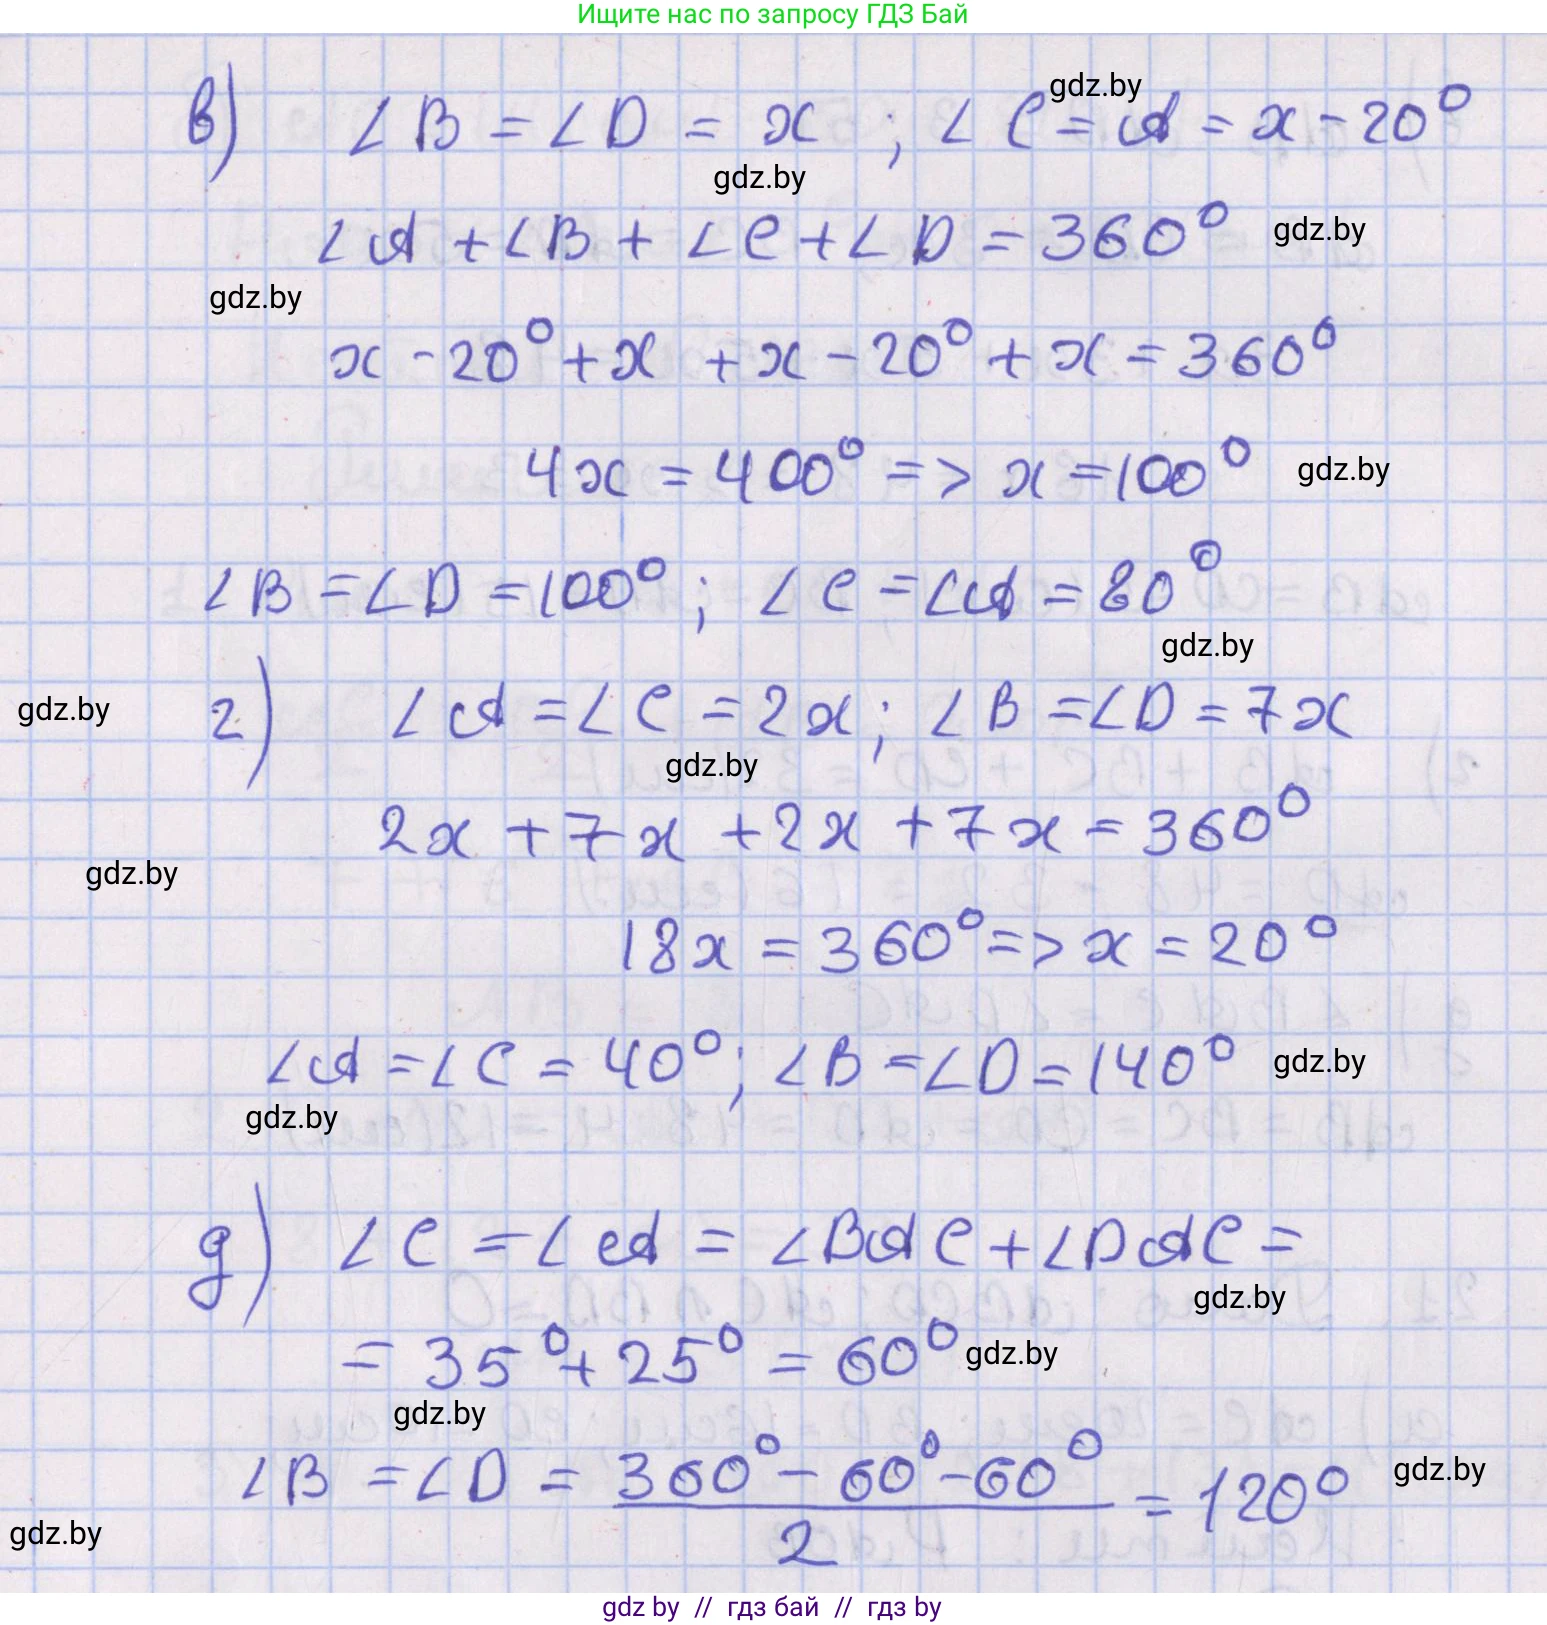 Ищите нас по запросу ГДЗ Бай
в) ∠B = ∠D = x ; ∠C = A = x - 20°
gdz.by
gdz.by
∠A + ∠B + ∠C + ∠D = 360° gdz.by
gdz.by
x - 20° + x + x - 20° + x = 360°
4x = 400° => x = 100° gdz.by
∠B = ∠D = 100° ; ∠C = ∠A = 80°
gdz.by
gdz.by г) ∠A = ∠C = 2x ; ∠B = ∠D = 7x
gdz.by
2x + 7x + 2x + 7x = 360°
gdz.by
18x = 360° => x = 20°
∠A = ∠C = 40° ; ∠B = ∠D = 140° gdz.by
gdz.by
д) ∠C = ∠A = ∠BAC + ∠DAC =
gdz.by
= 35° + 25° = 60° gdz.by
gdz.by
∠B = ∠D = (360° - 60° - 60°)/2 = 120° gdz.by
gdz.by
gdz by // гдз бай // гдз by